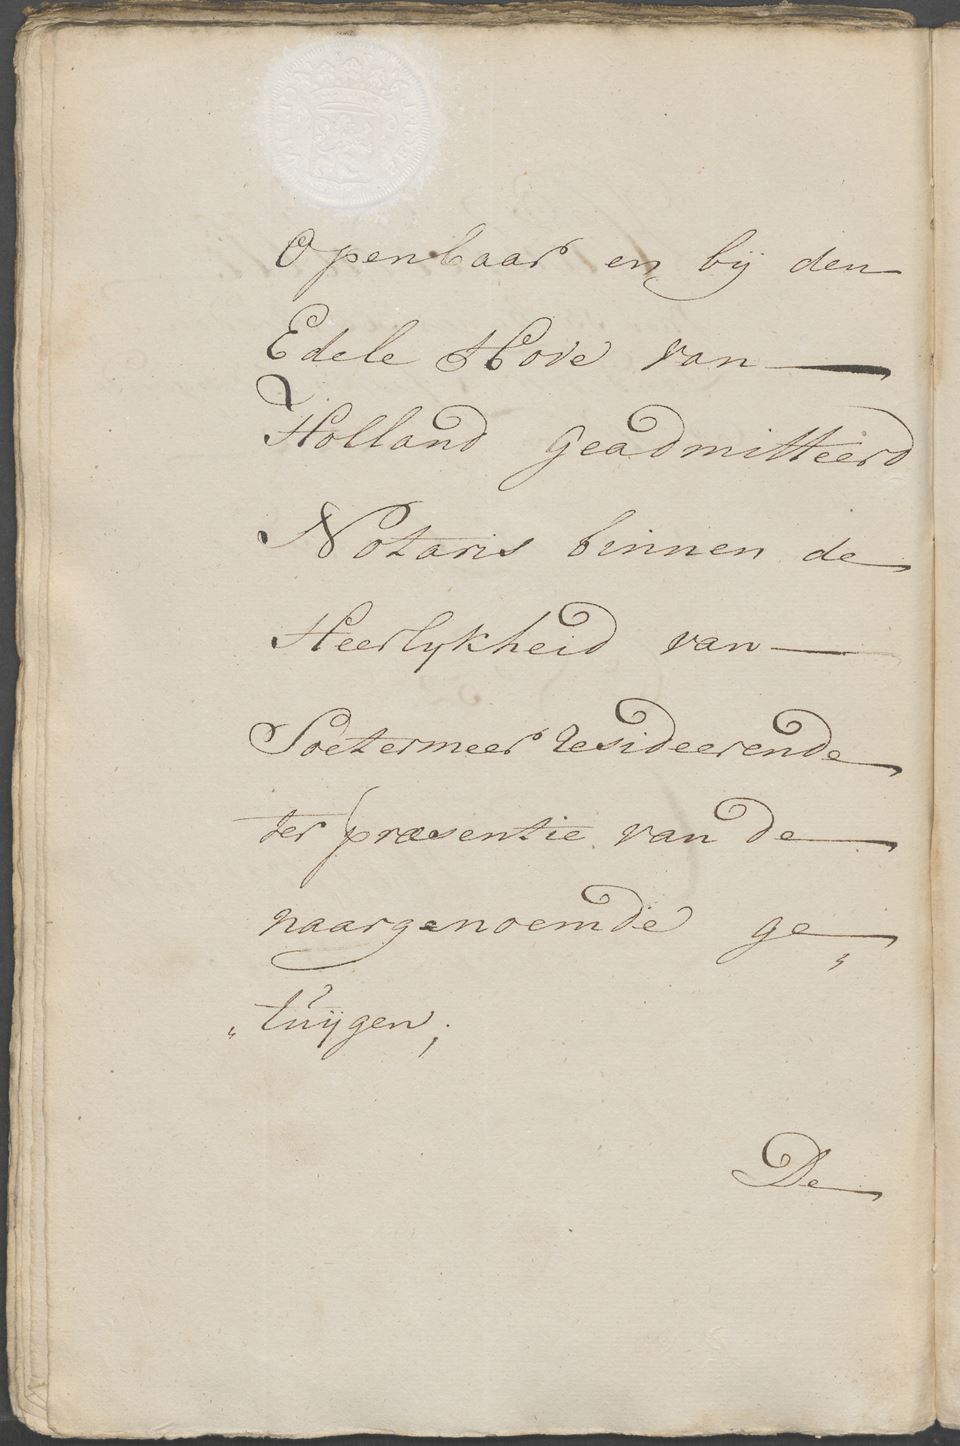 Openbaar en bij den
Edele Hove van
Holland geadmitteerd
Notaris binnen de
Heerlykheid van
Soetermeer resideerende
ter præsentie van de
naargenoemde ge„
„tuijgen;
De